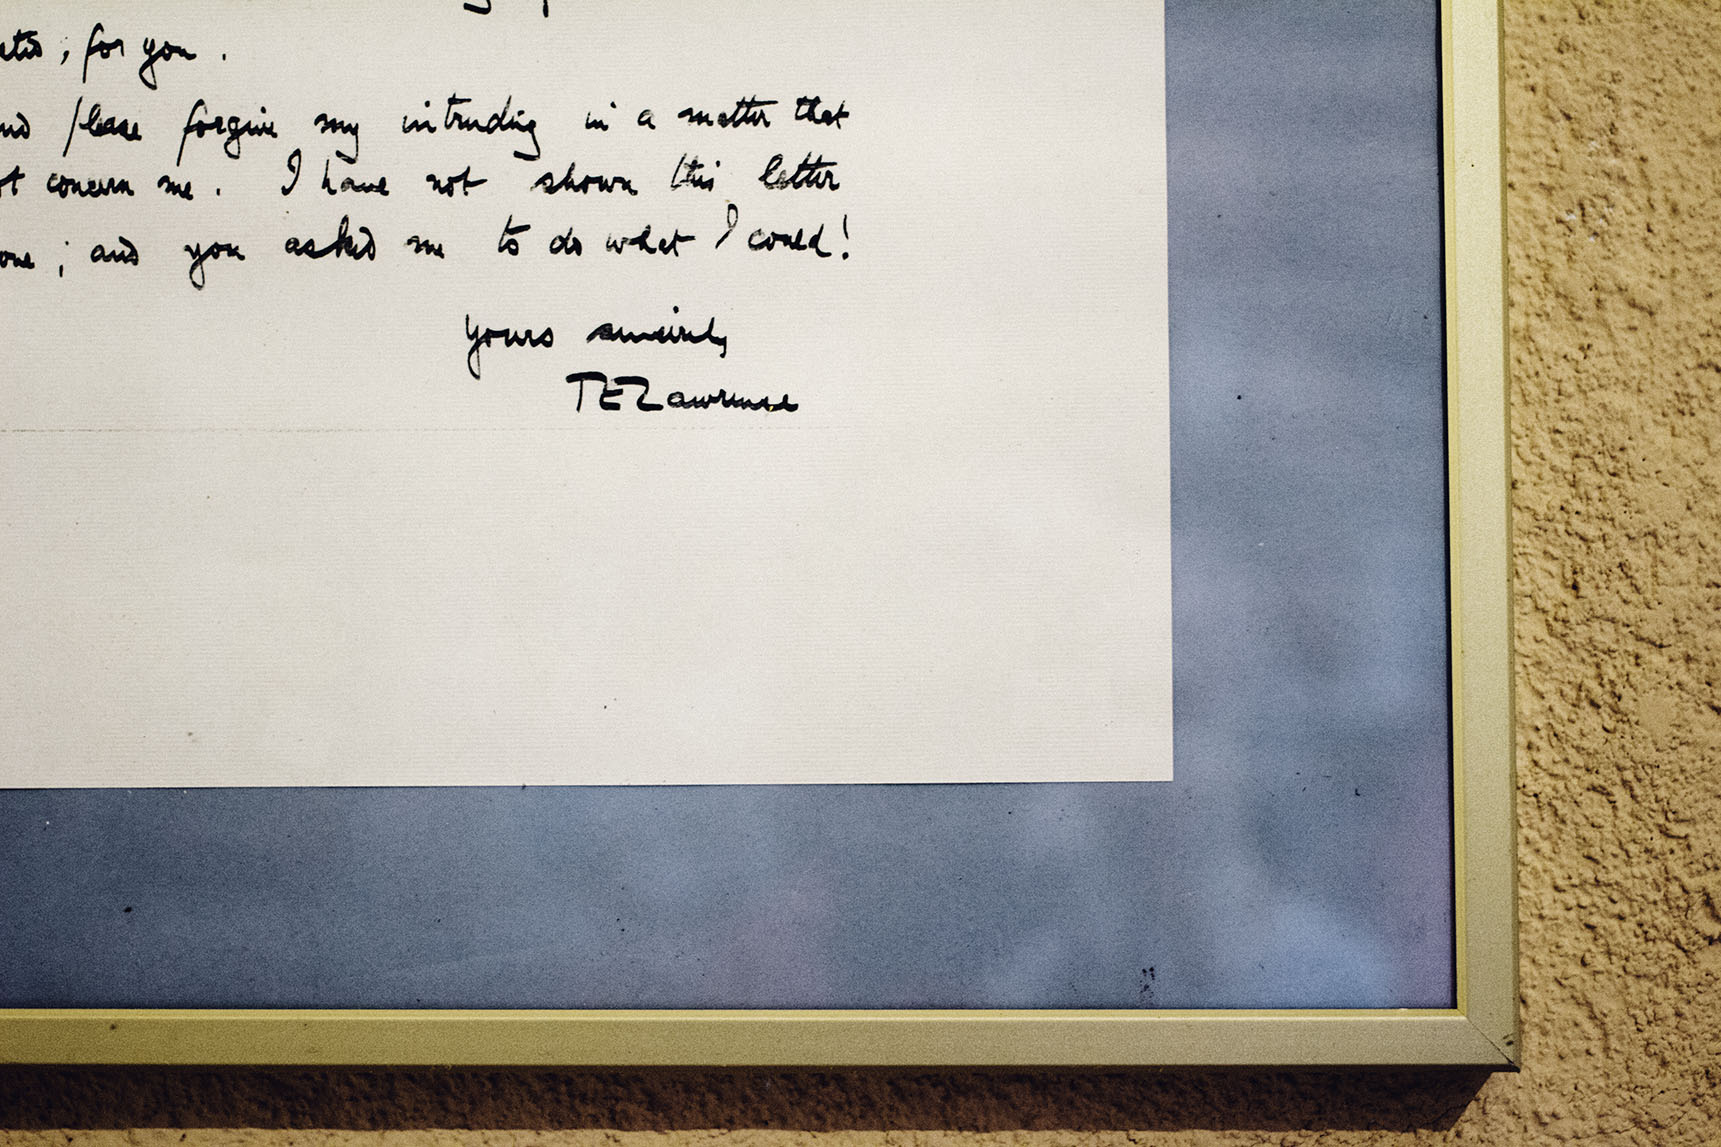 , for you .
please forgive my intruding in a matter that
concern me . I have not shown this letter
; and you asked me to do what I could!
Yours sincerely
TELawrence